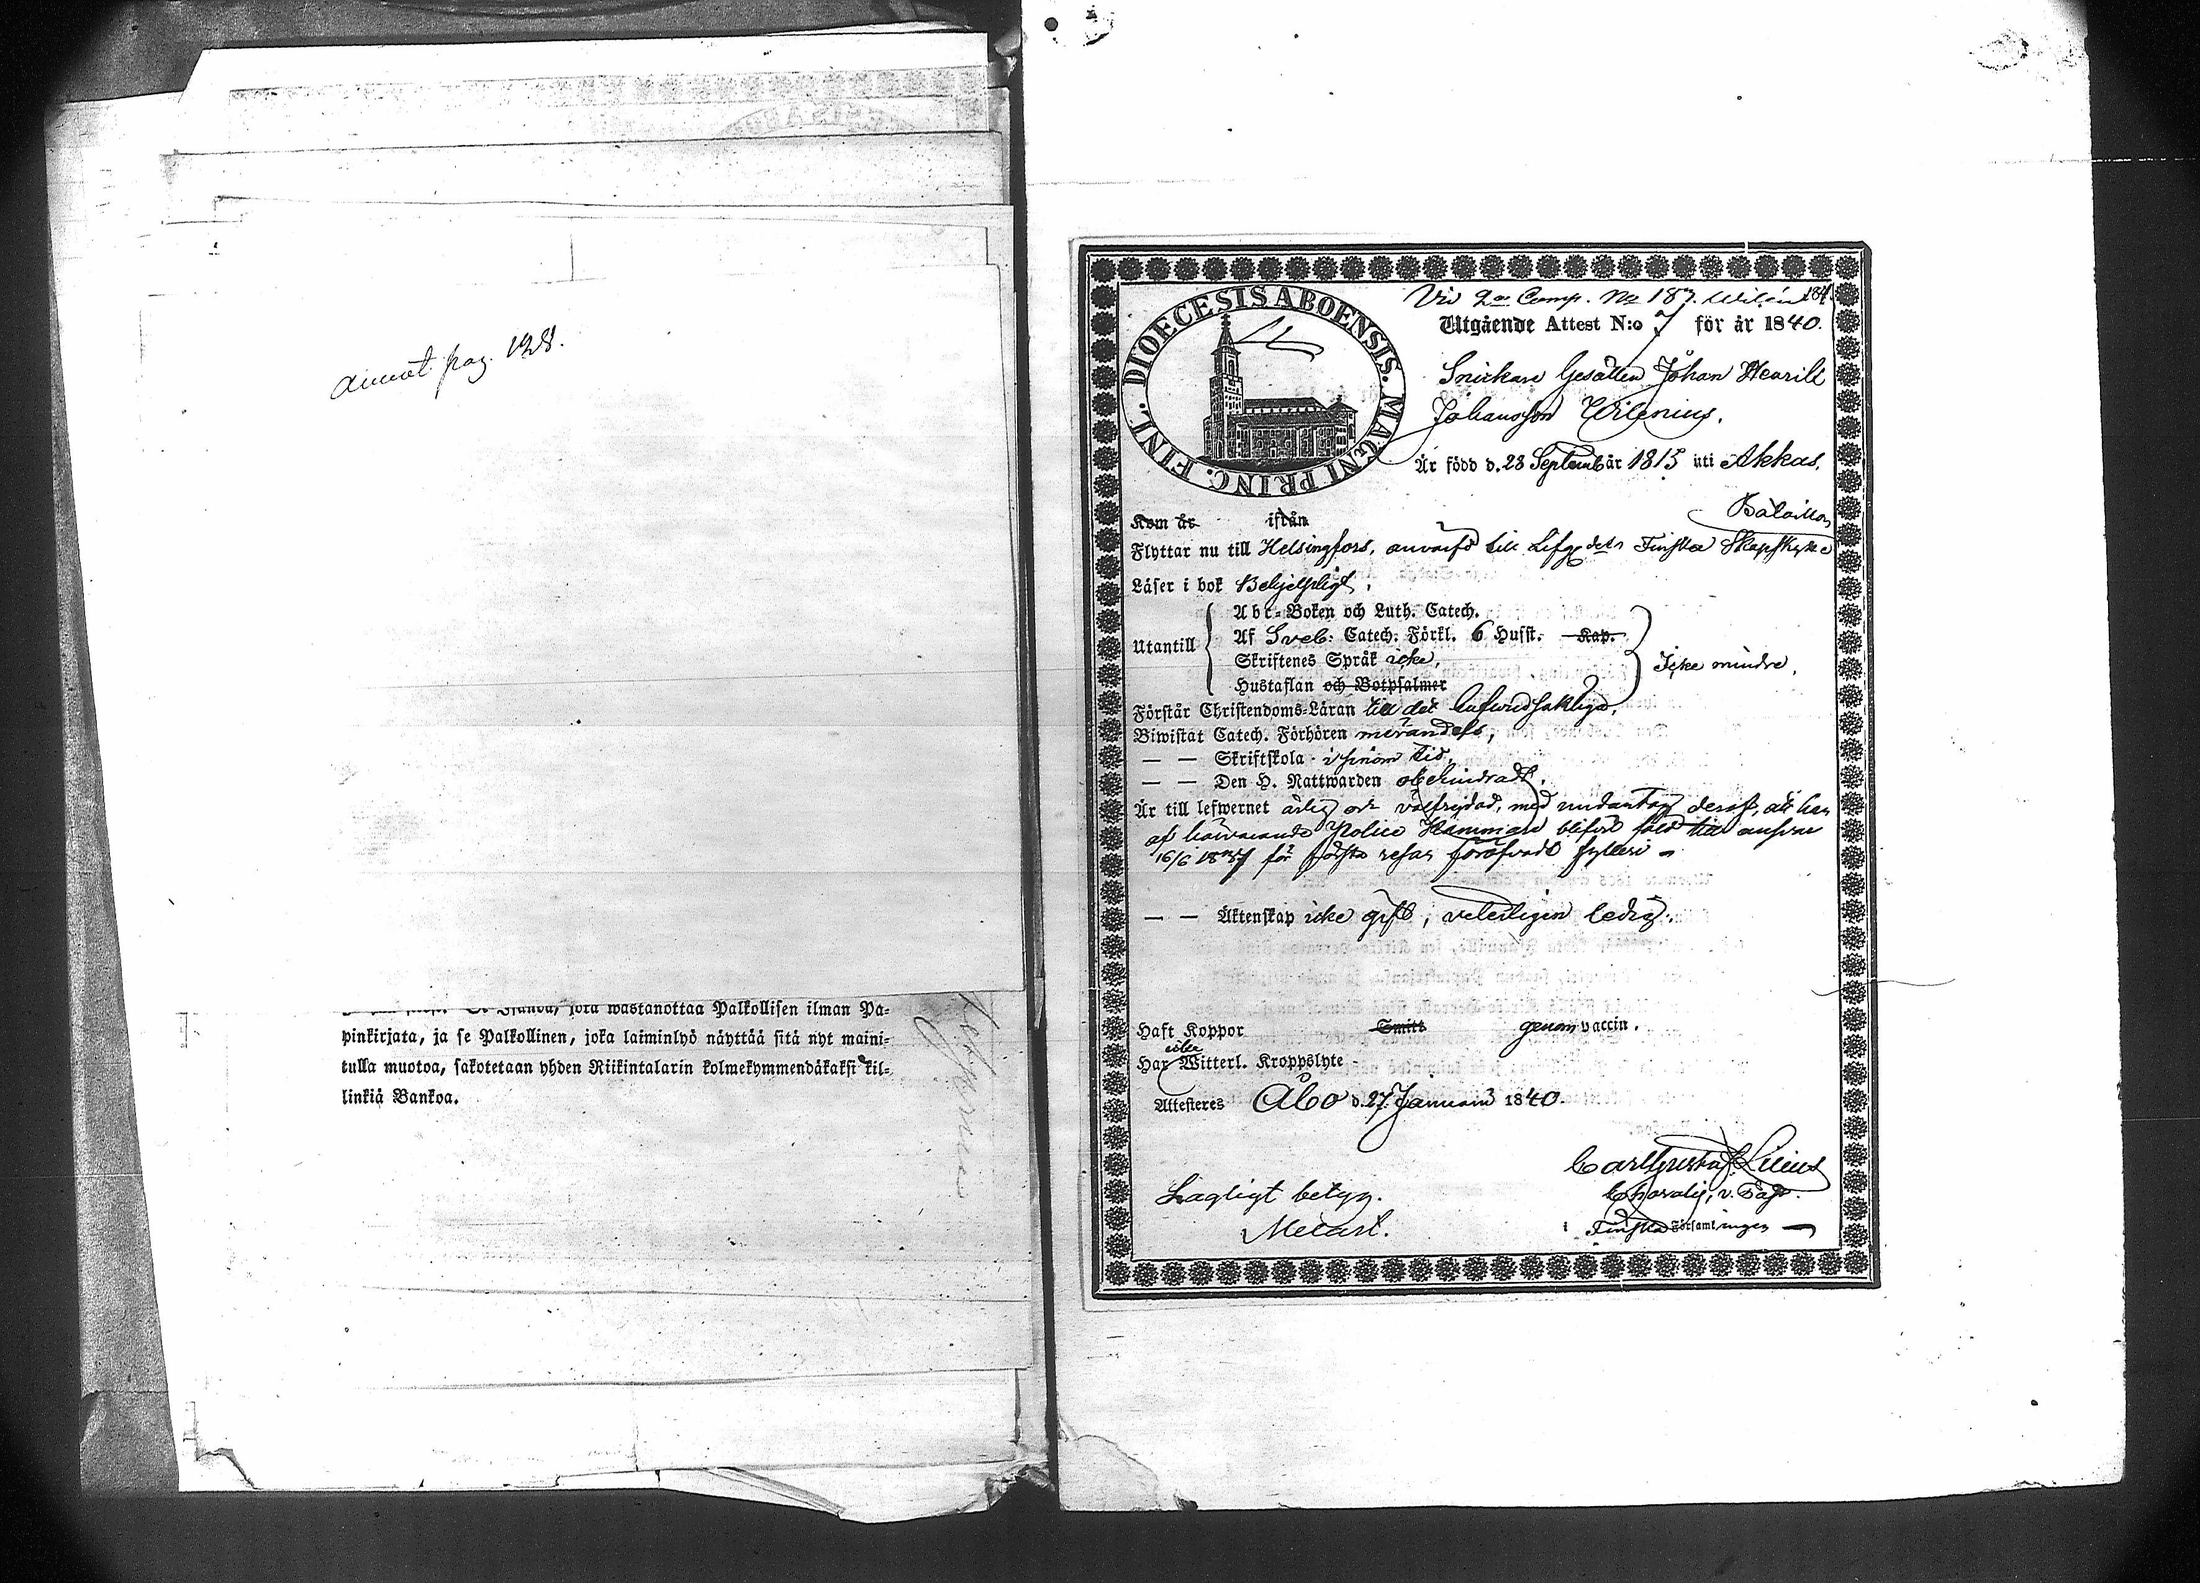 annot. pag. 128.
joka wastanottaa Palkollisen ilman Pa-
pinkirjata, ja se Palkollinen, joka laiminlyö näyttää sitä nyt maini-
tulla muotoa, sakotetaan yhden Riikintalarin kolmekymmendäkaksi kil-
linkiä Bankoa.
DIOECESIS ABOENSIS. MAGNI PRINC. FINL.
Vid 2a Comp. No 187. Wilén 184
Utgående Attest N:o 7 för år 1840.
Snickare Gesällen Johan Henrik
Johansson Wilenius.
Är född d. 28 Septemb år 1815 uti Akkas.
Kom år ifrån
Bataillon
Flyttar nu till Helsingfors, antagd till Lifg. dets Finska Skarpskytte
Läser i bok Behjelpligt.
Utantill
Abc-Boken och Luth. Catech.
Af Sveb. Catech. Förkl. 6 Hufst. Kap.
Skriftenes Språk icke,
Hustaflan och Botpsalmer
Icke mindre.
Förstår Christendoms-Läran till det hufvudsakliga.
Biwistat Catech. Förhören
— — Skriftskola i sinom tid,
— — Den H. Nattwarden obehindradt.
Är till lefwernet ärlig och välfrejdad, med undantag deraf, att han
af härvarande Police Kammare blifvit fäld till ansvar
16/6 1837 för första resan föröfvadt fylleri
— — Äktenskap icke gift, veterligen ledig.
Haft Koppor Smitt genom vaccin.
Har icke Witterl. Kroppslyte
Attesteres Åbo d. 27 Januari 1840.
Carl Gustaf
v. Past.
i Finska Församlingen
Lagligt betyg.